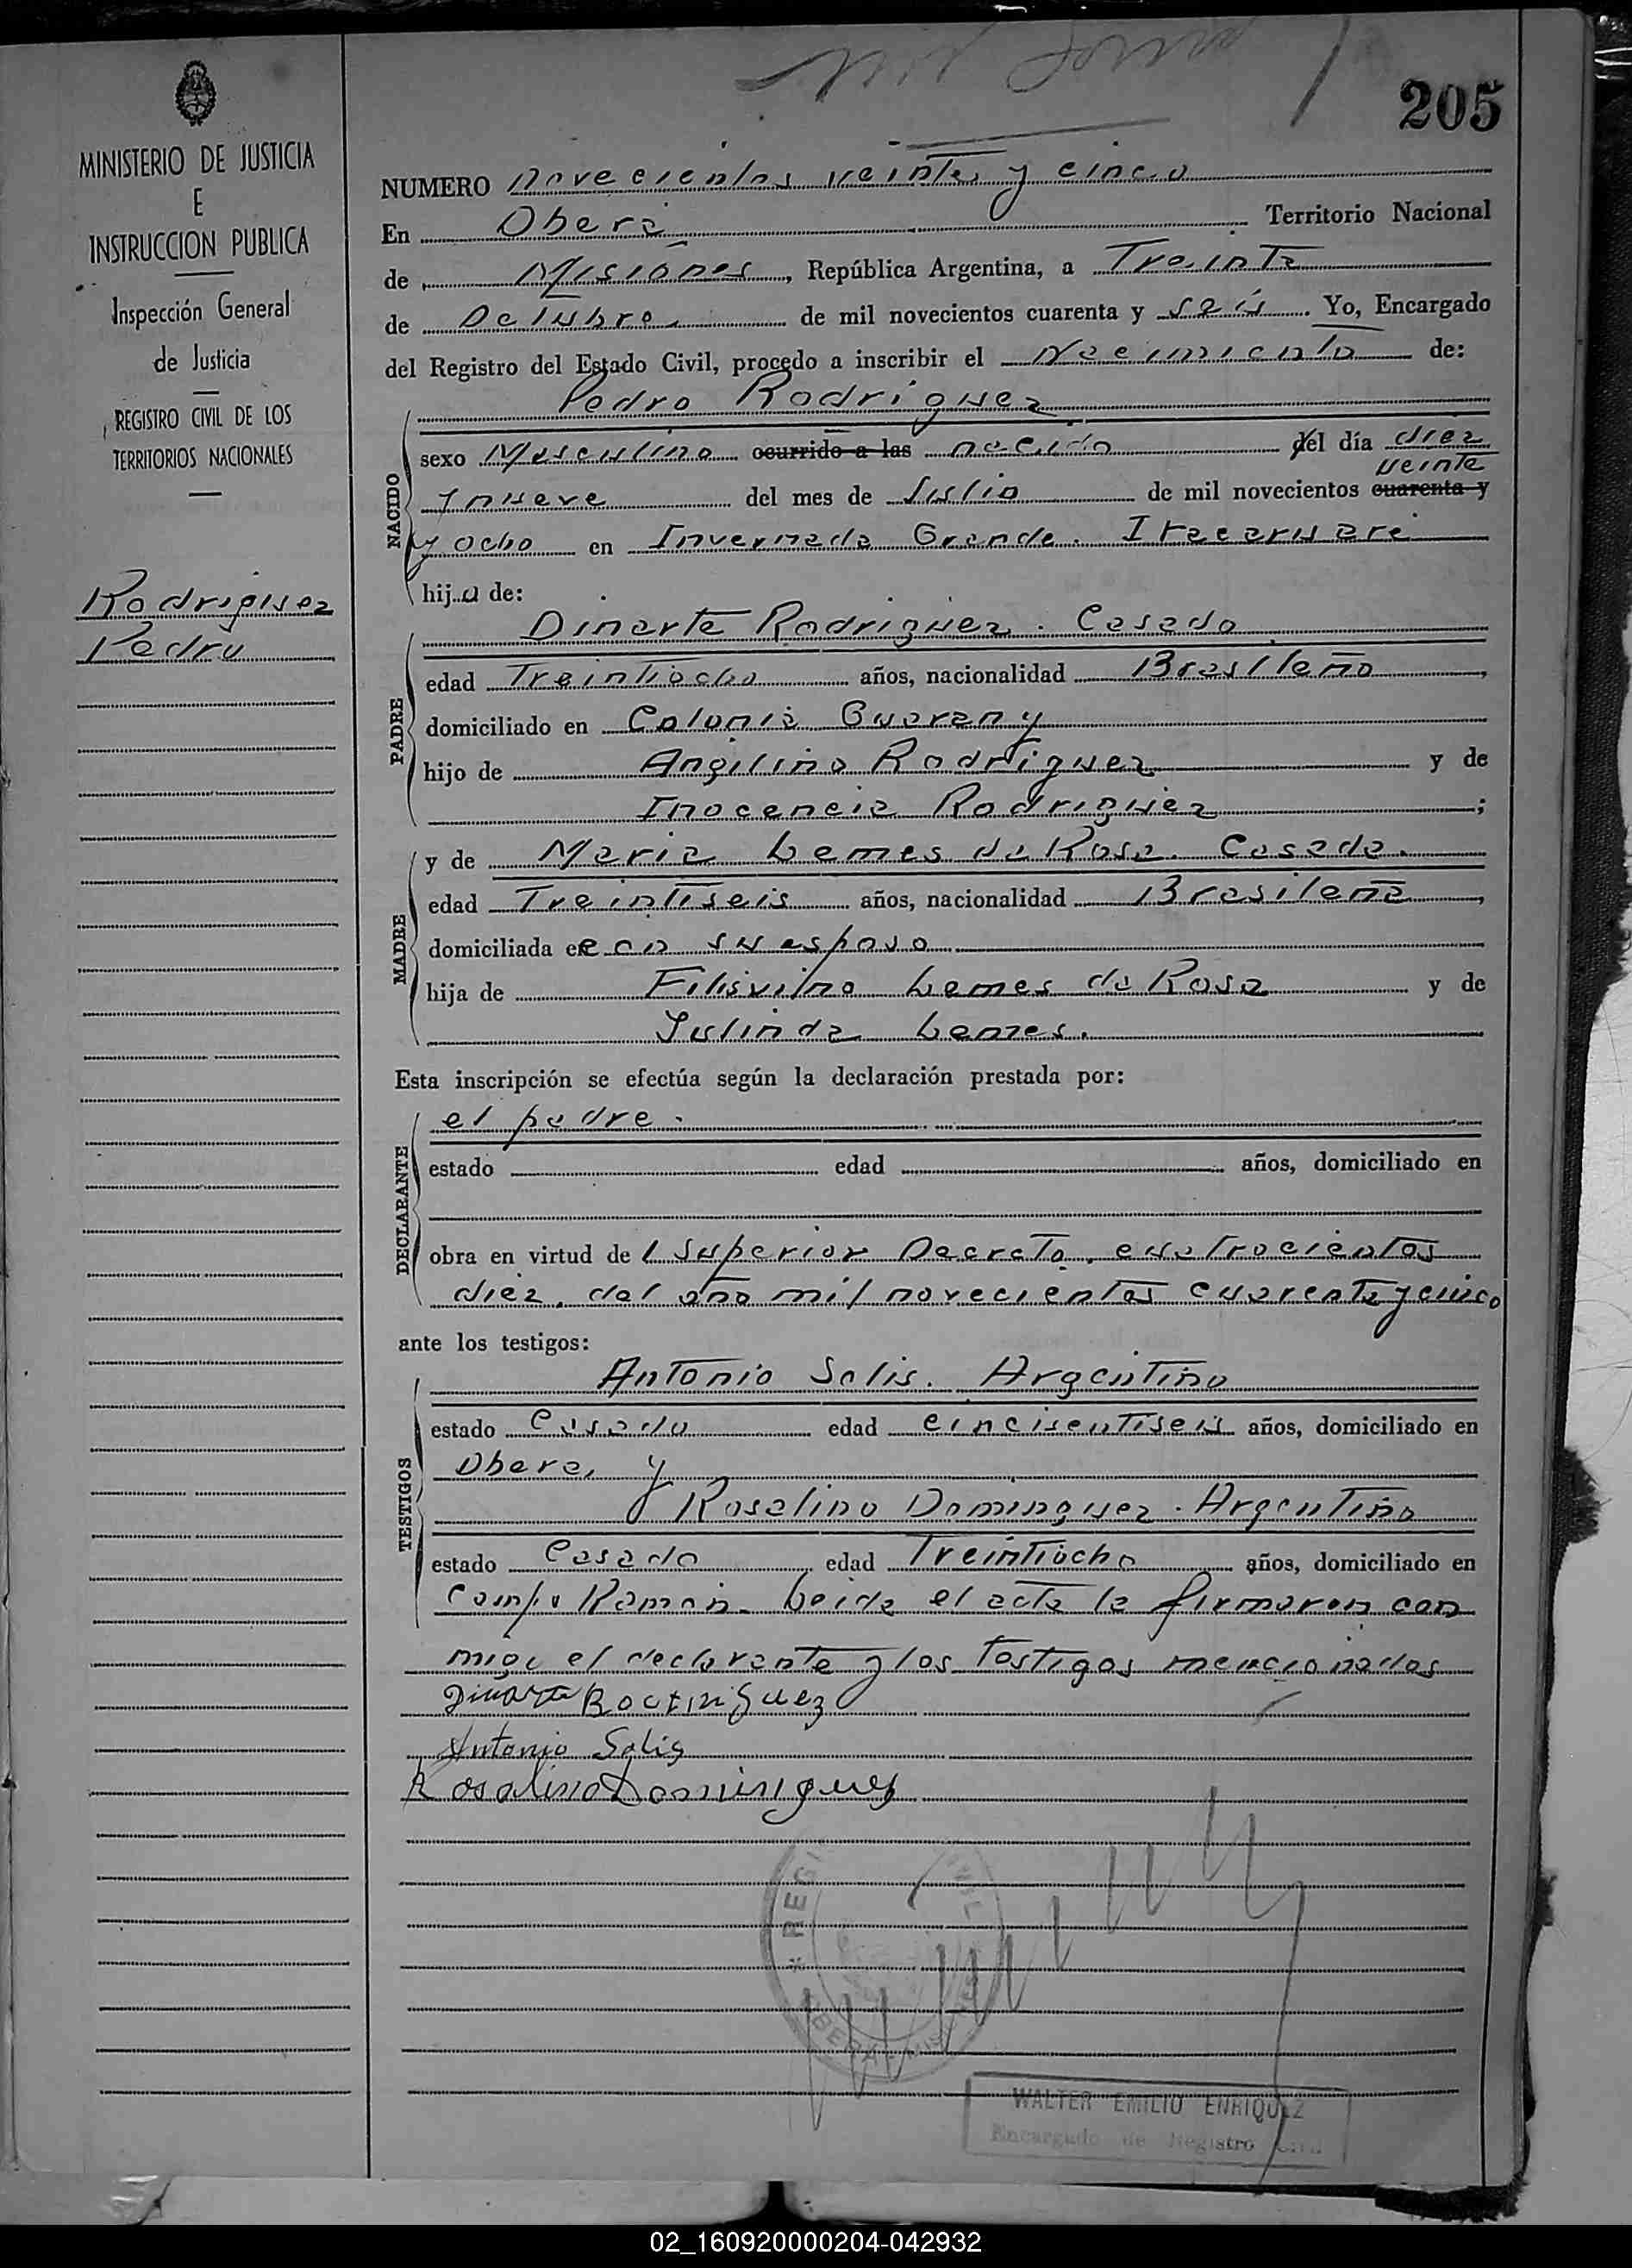 205
MINISTERIO DE JUSTICIA
E
INSTRUCCION PUBLICA
Inspección General
de Justicia
REGISTRO CIVIL DE LOS
TERRITORIOS NACIONALES
Rodriguez
Pedro
NUMERO Novecientos veinte y cinco
En Obera Territorio Nacional
de Misiones, República Argentina, a Treinta
de Octubre de mil novecientos cuarenta y seis. Yo, Encargado
del Registro del Estado Civil, procedo a inscribir el Nacimiento de:
Pedro Rodriguez
NACIDO
sexo Masculino ocurrido a las nacido del día diez
veinte
y nueve del mes de Julio de mil novecientos cuarenta y
y ocho en Invernada Grande. Itacaruare
hijo de:
Dinarte Rodriguez. Casado
PADRE
edad Treintiocho años, nacionalidad Brasileño,
domiciliado en Colonia Guarany
hijo de Angilino Rodriguez y de
Inocencia Rodriguez;
y de Maria Lemes da Rosa. Casada.
MADRE
edad Treintiseis años, nacionalidad Brasileña,
domiciliada en con su esposo
hija de Lemes da Rosa y de
Julinda Lemes.
Esta inscripción se efectúa según la declaración prestada por:
DECLARANTE
el padre.
estado edad años, domiciliado en
obra en virtud del Superior Decreto, cuatrocientos
diez. del año mil novecientos cuarenta y cinco
ante los testigos:
TESTIGOS
Antonio Solis. Argentino
estado Casado edad cincuentiseis años, domiciliado en
Obera, y
Rosalino Dominguez. Argentino
estado Casado edad Treintiocho años, domiciliado en
Campo Ramon. Leida el acta la firmaron con
migo el declarante y los Testigos mencionados
Dinarte Rodriguez
Antonio Solis
Rosalino Dominguez
REGI
WALTER EMILIO ENRIQUEZ
Encargado de Registro Civil
02_160920000204-042932